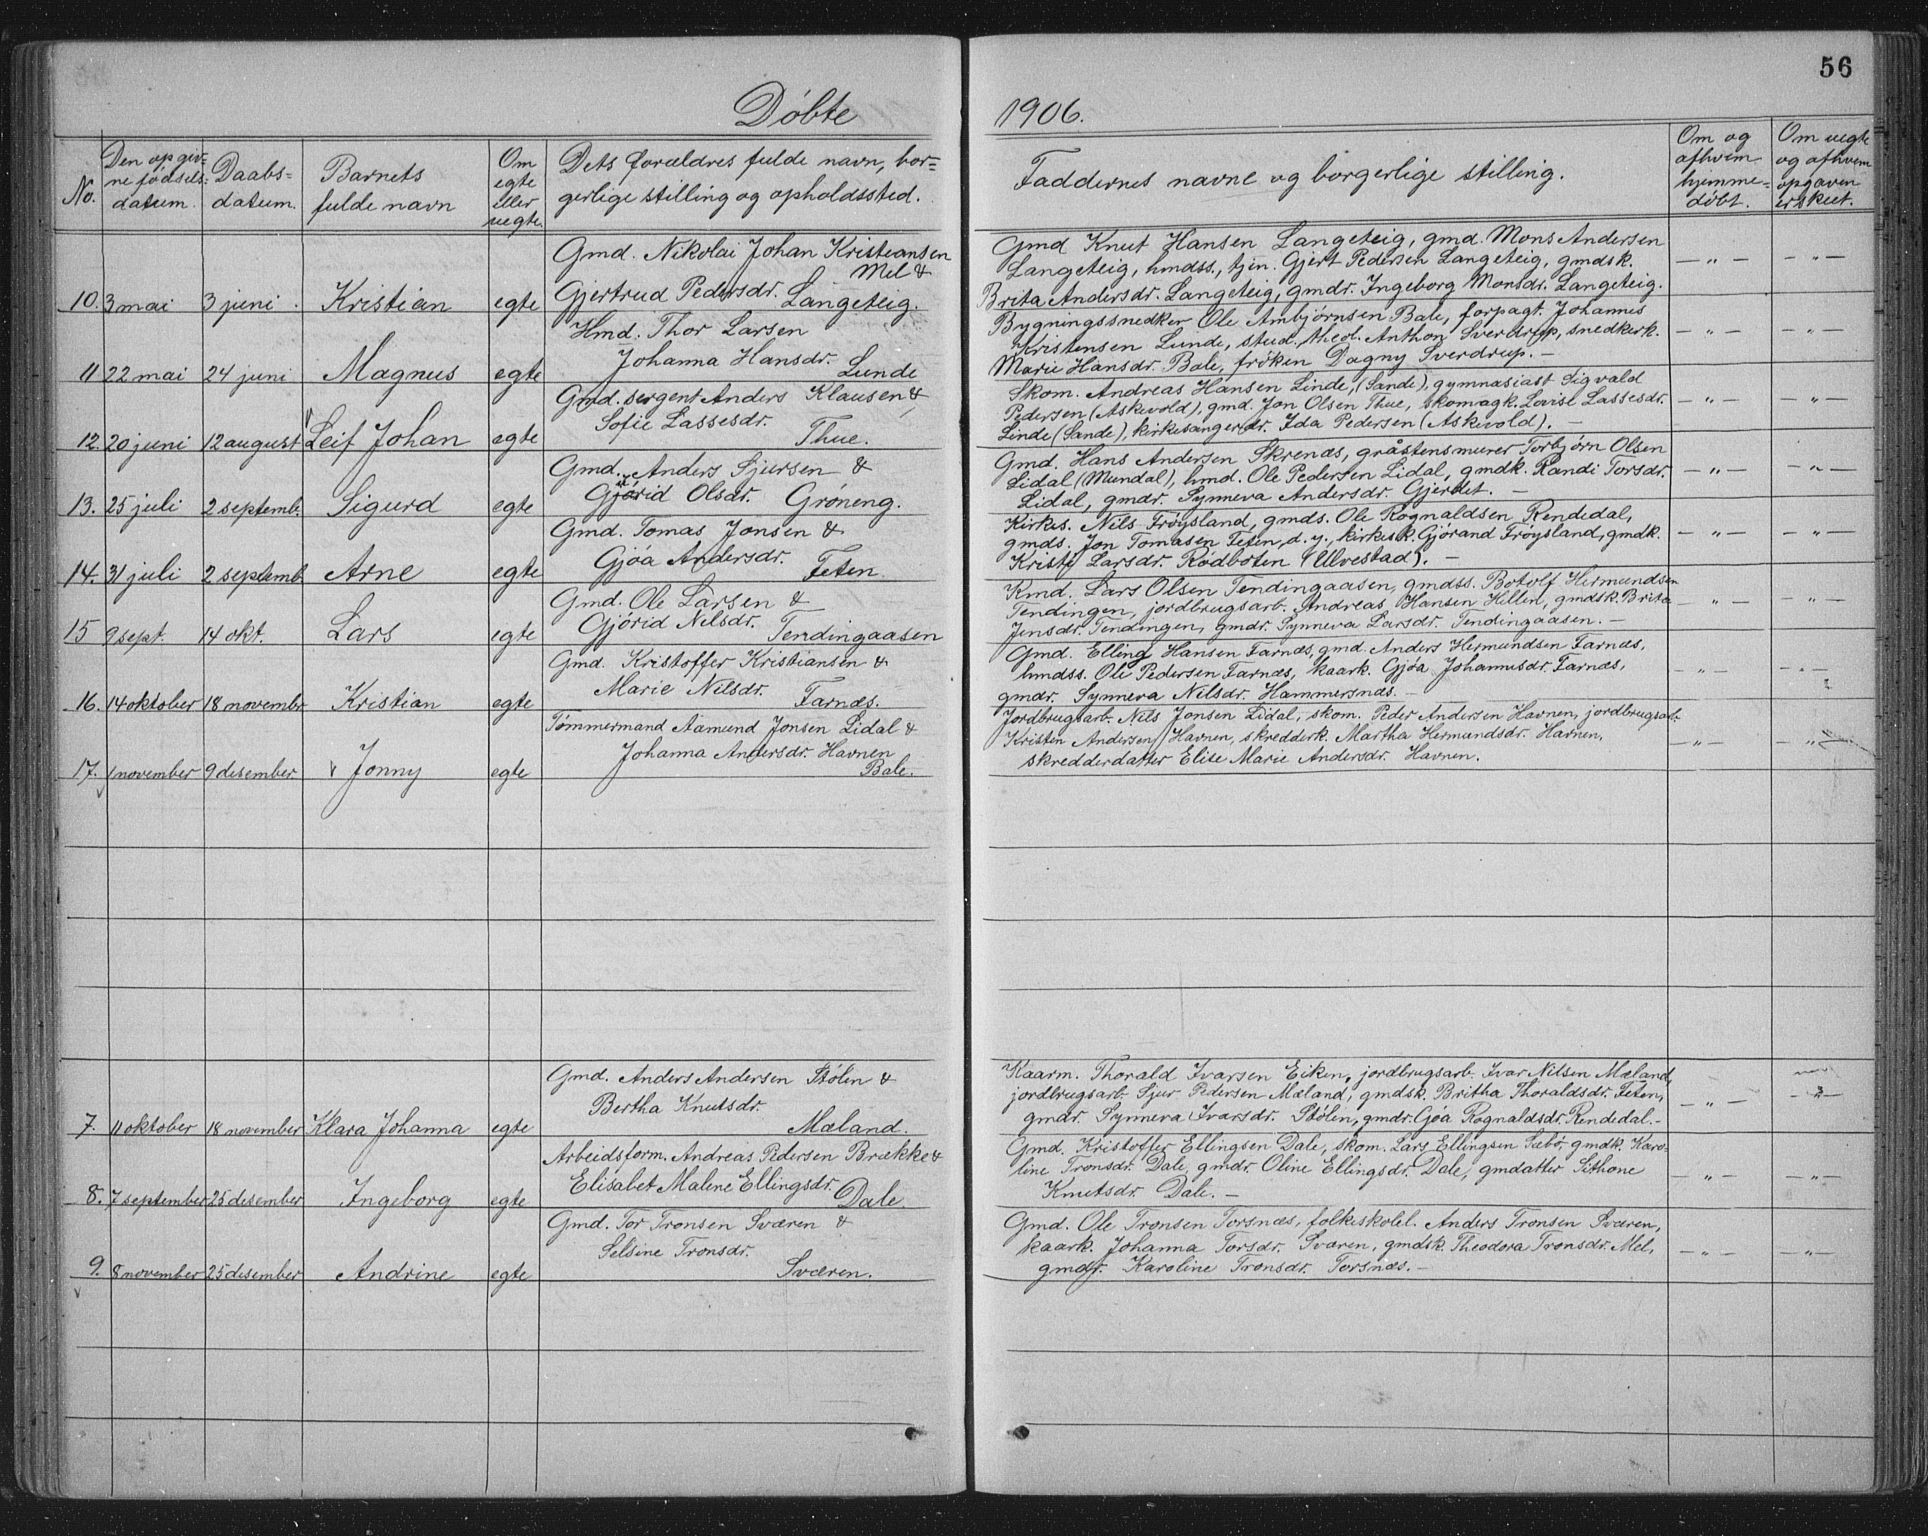 56
Døbte 1906.
No.
Den opgiv-
ne fødsels-
datum.
Daabs-
datum.
Barnets
fulde navn
Om
egte
eller
uegte.
Dets forældres fulde navn, bor-
gerlige stilling og opholdssted.
Faddernes navne og borgerlige stilling.
Om og
afhvem
hjemme-
døbt.
Om uegte
og afhvem
opgaven
er skeet.
Gmd. Nikolai Johan Kristiansen
Mel &
10. 3 mai 3 juni. Kristian egte Gjertrud Pedersdr. Langeteig.
Gmd Knut Hansen Langeteig, gmd. Mons Andersen
Langeteig, hmdss., tjen. Gjert Pedersen Langeteig, gmdsk. — " — — " —
Brita Andersdr. Langeteig, gmdr. Ingeborg Monsdr. Langeteig.
Hmd. Thor Larsen
Johanna Hansdr.
11 22 mai 24 juni Magnus egte Lunde
Bygningssnedker Ole Ambjørnsen Bale, forpagt. Johannes
Kristensen Lunde, stud. theol. Anthon Sverdrup, snedkerk. — " — — " —
Marie Hansdr. Bale, frøken Dagny Sverdrup. —
Gmd. sergent Anders Klausen &
Sofie Lassesdr.
12. 20 juni 12 august Leif Johan egte Thue.
Skom. Andreas Hansen Linde, (Sande), gymnasiast Sigvald
Pedersen (Askevold), gmd. Jon Olsen Thue, skomagk. Lovise Lassesdr. — " — — " —
Linde (Sande), kirkesangerdr. Ida Pedersen (Askevold). —
Gmd. Anders Sjursen &
13. 25 juli 2 septemb. Sigurd egte Gjørid Olsdr. Grøneng.
Gmd. Hans Andersen Skrenæs, gråstensmurer Torbjørn Olsen
Lidal (Mundal), hmd. Ole Pedersen Lidal, gmdk. Randi Torsdr. — " — — " —
Lidal, gmdr. Synneva Andersdr. Gjerdet. —
Gmd. Tomas Jonsen &
Gjøa Andersdr.
14. 31 juli 2 septemb. Arne egte Feten.
Kirkes. Nils Frøysland, gmds. Ole Rognaldsen Rendedal,
gmds. Jon Tomasen Feten, d. y., kirkesk. Gjørand Frøysland, gmdk. — " — — " —
Kristi Larsdr. Rødboten (Ulvestad). —
Gmd. Ole Larsen &
15 9 sept. 14 okt. Lars egte Gjørid Nilsdr. Tendingaasen
Kmd. Lars Olsen Tendingaasen, gmdss. Botolf Hermundsen
Tendingen, jordbrugsarb. Andreas Hansen Hillen, gmdsk. Brita — " — — " —
Jensdr. Tendingen, gmdr. Synneva Larsdr. Tendingaasen. —
Gmd. Kristoffer Kristiansen &
Marie Nilsdr.
16. 14 oktober 18 novembr. Kristian egte Farnæs.
Gmd. Elling Hansen Farnæs, gmd. Anders Hermundsen Farnæs,
hmdss. Ole Pedersen Farnæs, kaark. Gjøa Johannesdr. Farnæs, " — — " —
gmdr. Synneva Nilsdr. Hammersnæs. —
Tømmermand Aamund Jonsen Lidal &
Johanna Andersdr. Havnen
17. 1 november 9 desember Jonny egte Bale.
Jordbrugsarb. Nils Jonsen Lidal, skom. Peder Andersen Havnen, jordbrugsarb.
Kristen Andersen Havnen, skredderk. Martha Hermundsdr. Havnen, — " — — " —
skredderdatter Elise Marie Andersdr. Havnen.
Gmd. Anders Andersen Stølen &
Bertha Knutsdr.
7. 11 oktober 18 november Klara Johanna egte Mæland.
Kaarm. Thorald Ivarsen Eiken, jordbrugsarb. Ivar Nilsen Mæland,
jordbrugsarb. Sjur Pedersen Mæland, gmdsk. Britha Thoraldsdr. Feten, — " — — " —
gmdr. Synneva Ivarsdr. Stølen, gmdr. Gjøa Rognaldsdr. Rendedal. —
Arbeidsform. Andreas Pedersen Brække &
Elisabet Malene Ellingsdr.
8. 7 september 25 desember Ingeborg egte Dale.
Gmd. Kristoffer Ellingsen Dale, skom. Lars Ellingsen Sæbø, gmdk. Karo-
line Tronsdr. Dale, gmdr. Oline Ellingsdr. Dale, gmdatter Sithone — " — — " —
Knutsdr. Dale. —
Gmd. Tor Tronsen Sværen &
Selsine Tronsdr.
9. 8 november 25 desember Andrine egte Sværen.
Gmd. Ole Tronsen Torsnæs, folkeskolel. Anders Tronsen Sværen,
kaark. Johanna Torsdr. Sværen, gmdsk. Theodora Tronsdr. Mel, — " — — " —
gmdr. Karoline Tronsdr. Torsnæs. —